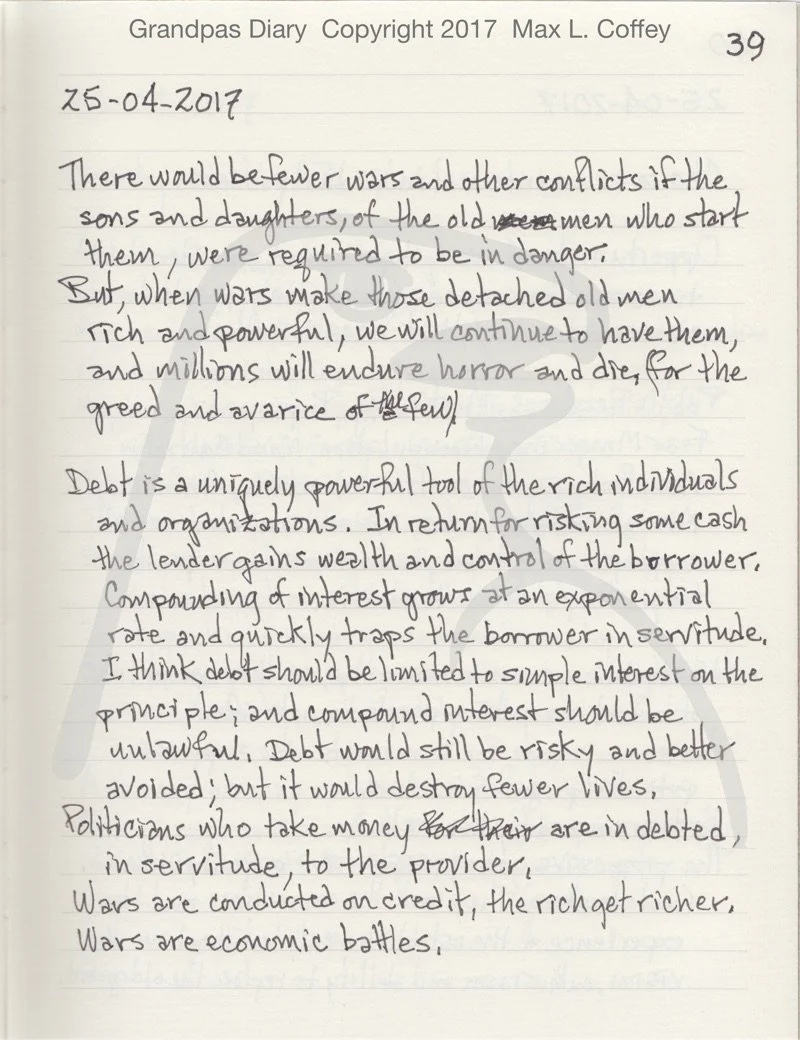 Grandpas Diary Copyright 2017 Max L. Coffey
39
25-04-2017
There would be fewer wars and other conflicts if the
sons and daughters, of the old men who start
them, were required to be in danger.
But, when wars make those detached old men
rich and powerful, we will continue to have them,
and millions will endure horror and die, for the
greed and avarice of the few!
Debt is a uniquely powerful tool of the rich individuals
and organizations. In return for risking some cash
the lender gains wealth and control of the borrower.
Compounding of interest grows at an exponential
rate and quickly traps the borrower in servitude.
I think debt should be limited to simple interest on the
principle; and compound interest should be
unlawful. Debt would still be risky and better
avoided; but it would destroy fewer lives.
Politicians who take money for their are in debted,
in servitude, to the provider.
Wars are conducted on credit, the rich get richer.
Wars are economic battles.